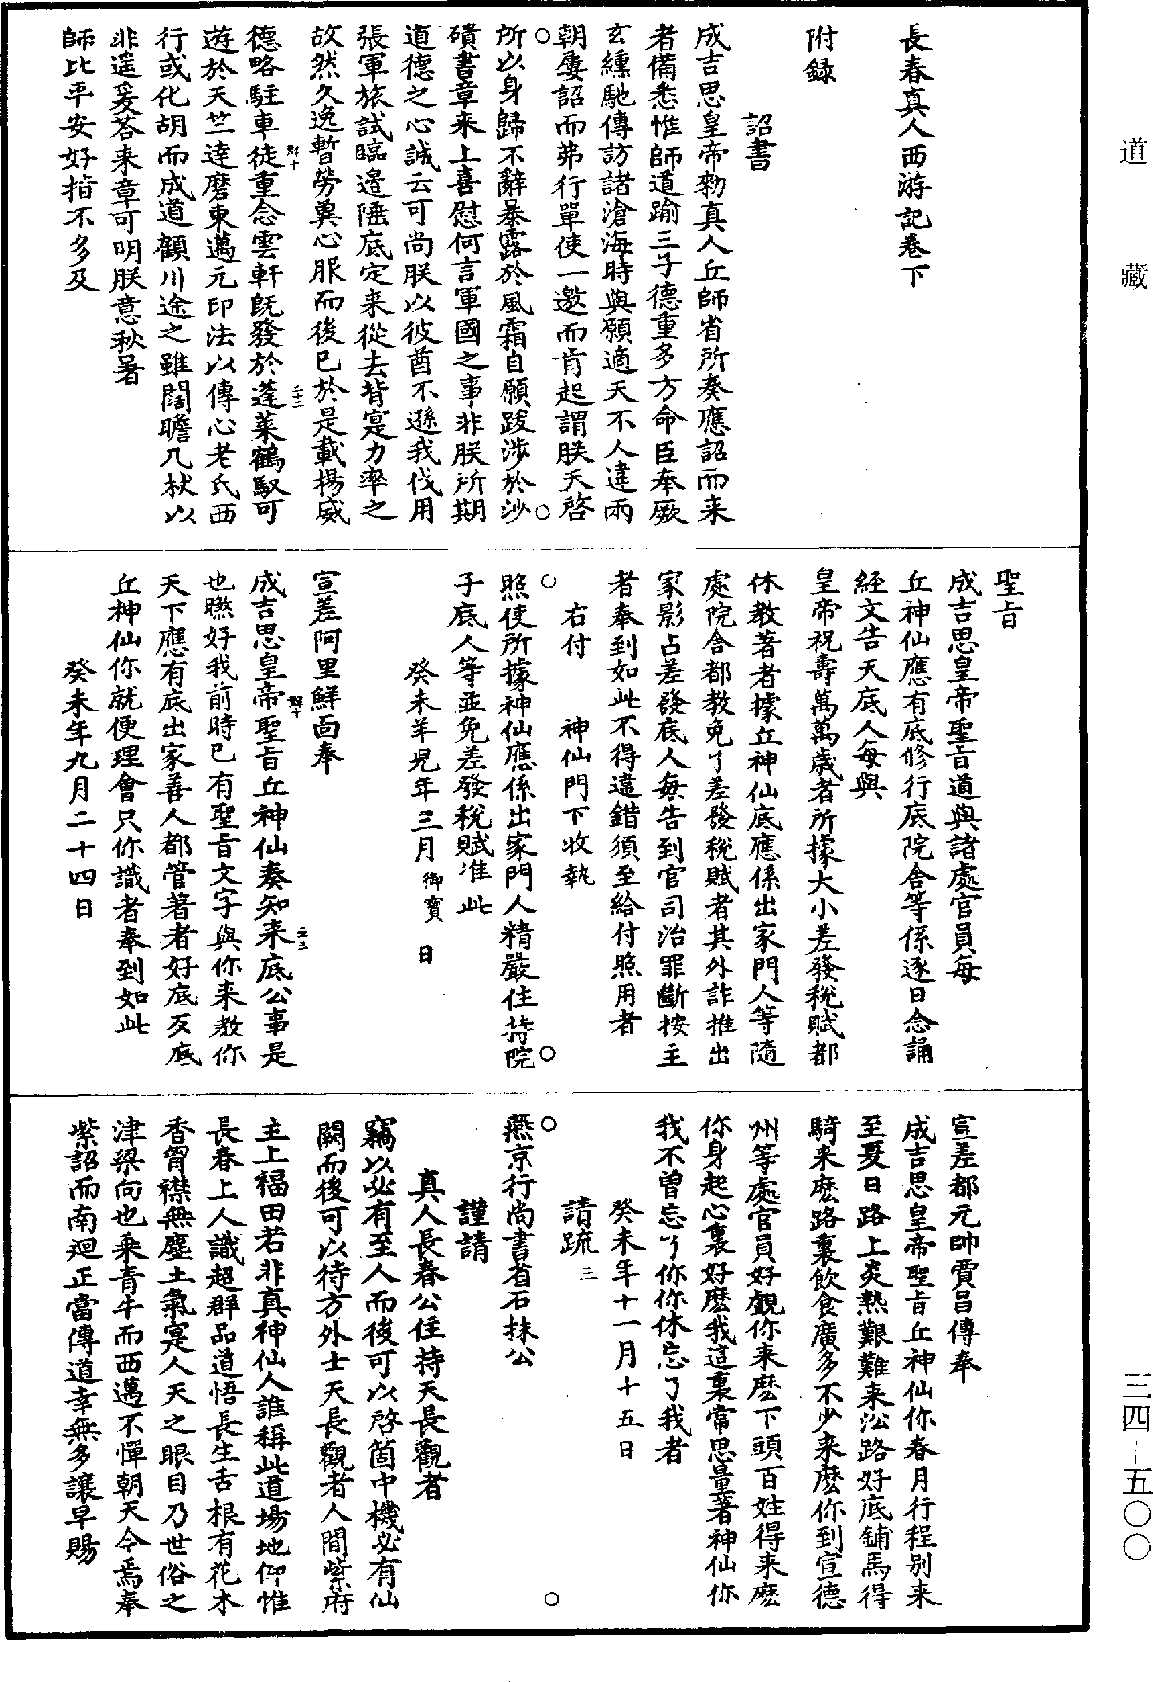 道藏
長春真人西游記卷下
附錄
詔書
成吉思皇帝勑真人丘師省所奏應詔而来
者備悉惟師道踰三子德重多方命臣奉厥
玄纁馳傳訪諸滄海時與願適天不人違兩
朝屢詔而弗行單使一邀而肯起謂朕天啓
所以身歸不辭暴露於風霜自願跋涉於沙
磧書章来上喜慰何言軍國之事非朕所期
道德之心誠云可尚朕以彼酋不遜我伐用
張軍旅試臨邊陲底定来從去背寔力率之
故然久逸暫勞冀心服而後已於是載揚威
德略駐車徒重念雲軒旣發於蓬萊鶴馭可
遊於天竺達磨東邁元印法以傳心老氏西
行或化胡而成道顧川途之雖闊瞻几杖以
非遥爰荅来章可明朕意秋暑
師比平安好指不多及
聖旨
成吉思皇帝聖旨道與諸處官員每
丘神仙應有底修行底院舍等係逐日念誦
經文告天底人每與
皇帝祝壽萬萬歲者所據大小差發稅賦都
休教著者據丘神仙底應係出家門人等隨
處院舍都教免了差發稅賦者其外詐推出
家影占差發底人每告到官司治罪斷按主
者奉到如此不得違錯須至給付照用者
右付 神仙門下收執
照使所據神仙應係出家門人精嚴住持院
子底人等並免差發稅賦准此
癸未羊兒年三月 御寶 日
宣差阿里鮮面奉
成吉思皇帝聖旨丘神仙奏知来底公事是
也㬠好我前時已有聖旨文字與你来教你
天下應有底出家善人都管著者好底歹底
丘神仙你就便理會只你識者奉到如此
癸未年九月二十四日
宣差都元帥賈昌傳奉
成吉思皇帝聖旨丘神仙你春月行程別来
至夏日路上炎熱艱難来沿路好底鋪馬得
騎来麽路裏飲食廣多不少来麽你到宣德
州等處官員好覷你来麽下頭百姓得来麽
你身起心裏好麽我這裏常思量著神仙你
我不曾忘了你你休忘了我者
癸未年十一月十五日
請疏三
燕京行尚書省石抹公
謹請
真人長春公住持天長觀者
竊以必有至人而後可以啓箇中機必有仙
闕而後可以待方外士天長觀者人間紫府
主上福田若非真神仙人誰稱此道場地仰惟
長春上人識超群品道悟長生舌根有花木
香胷襟無塵土氣寔人天之眼目乃世俗之
津梁向也乗青牛而西邁不憚朝天今焉奉
紫詔而南廻正當傳道幸無多讓早賜
三四-五〇〇